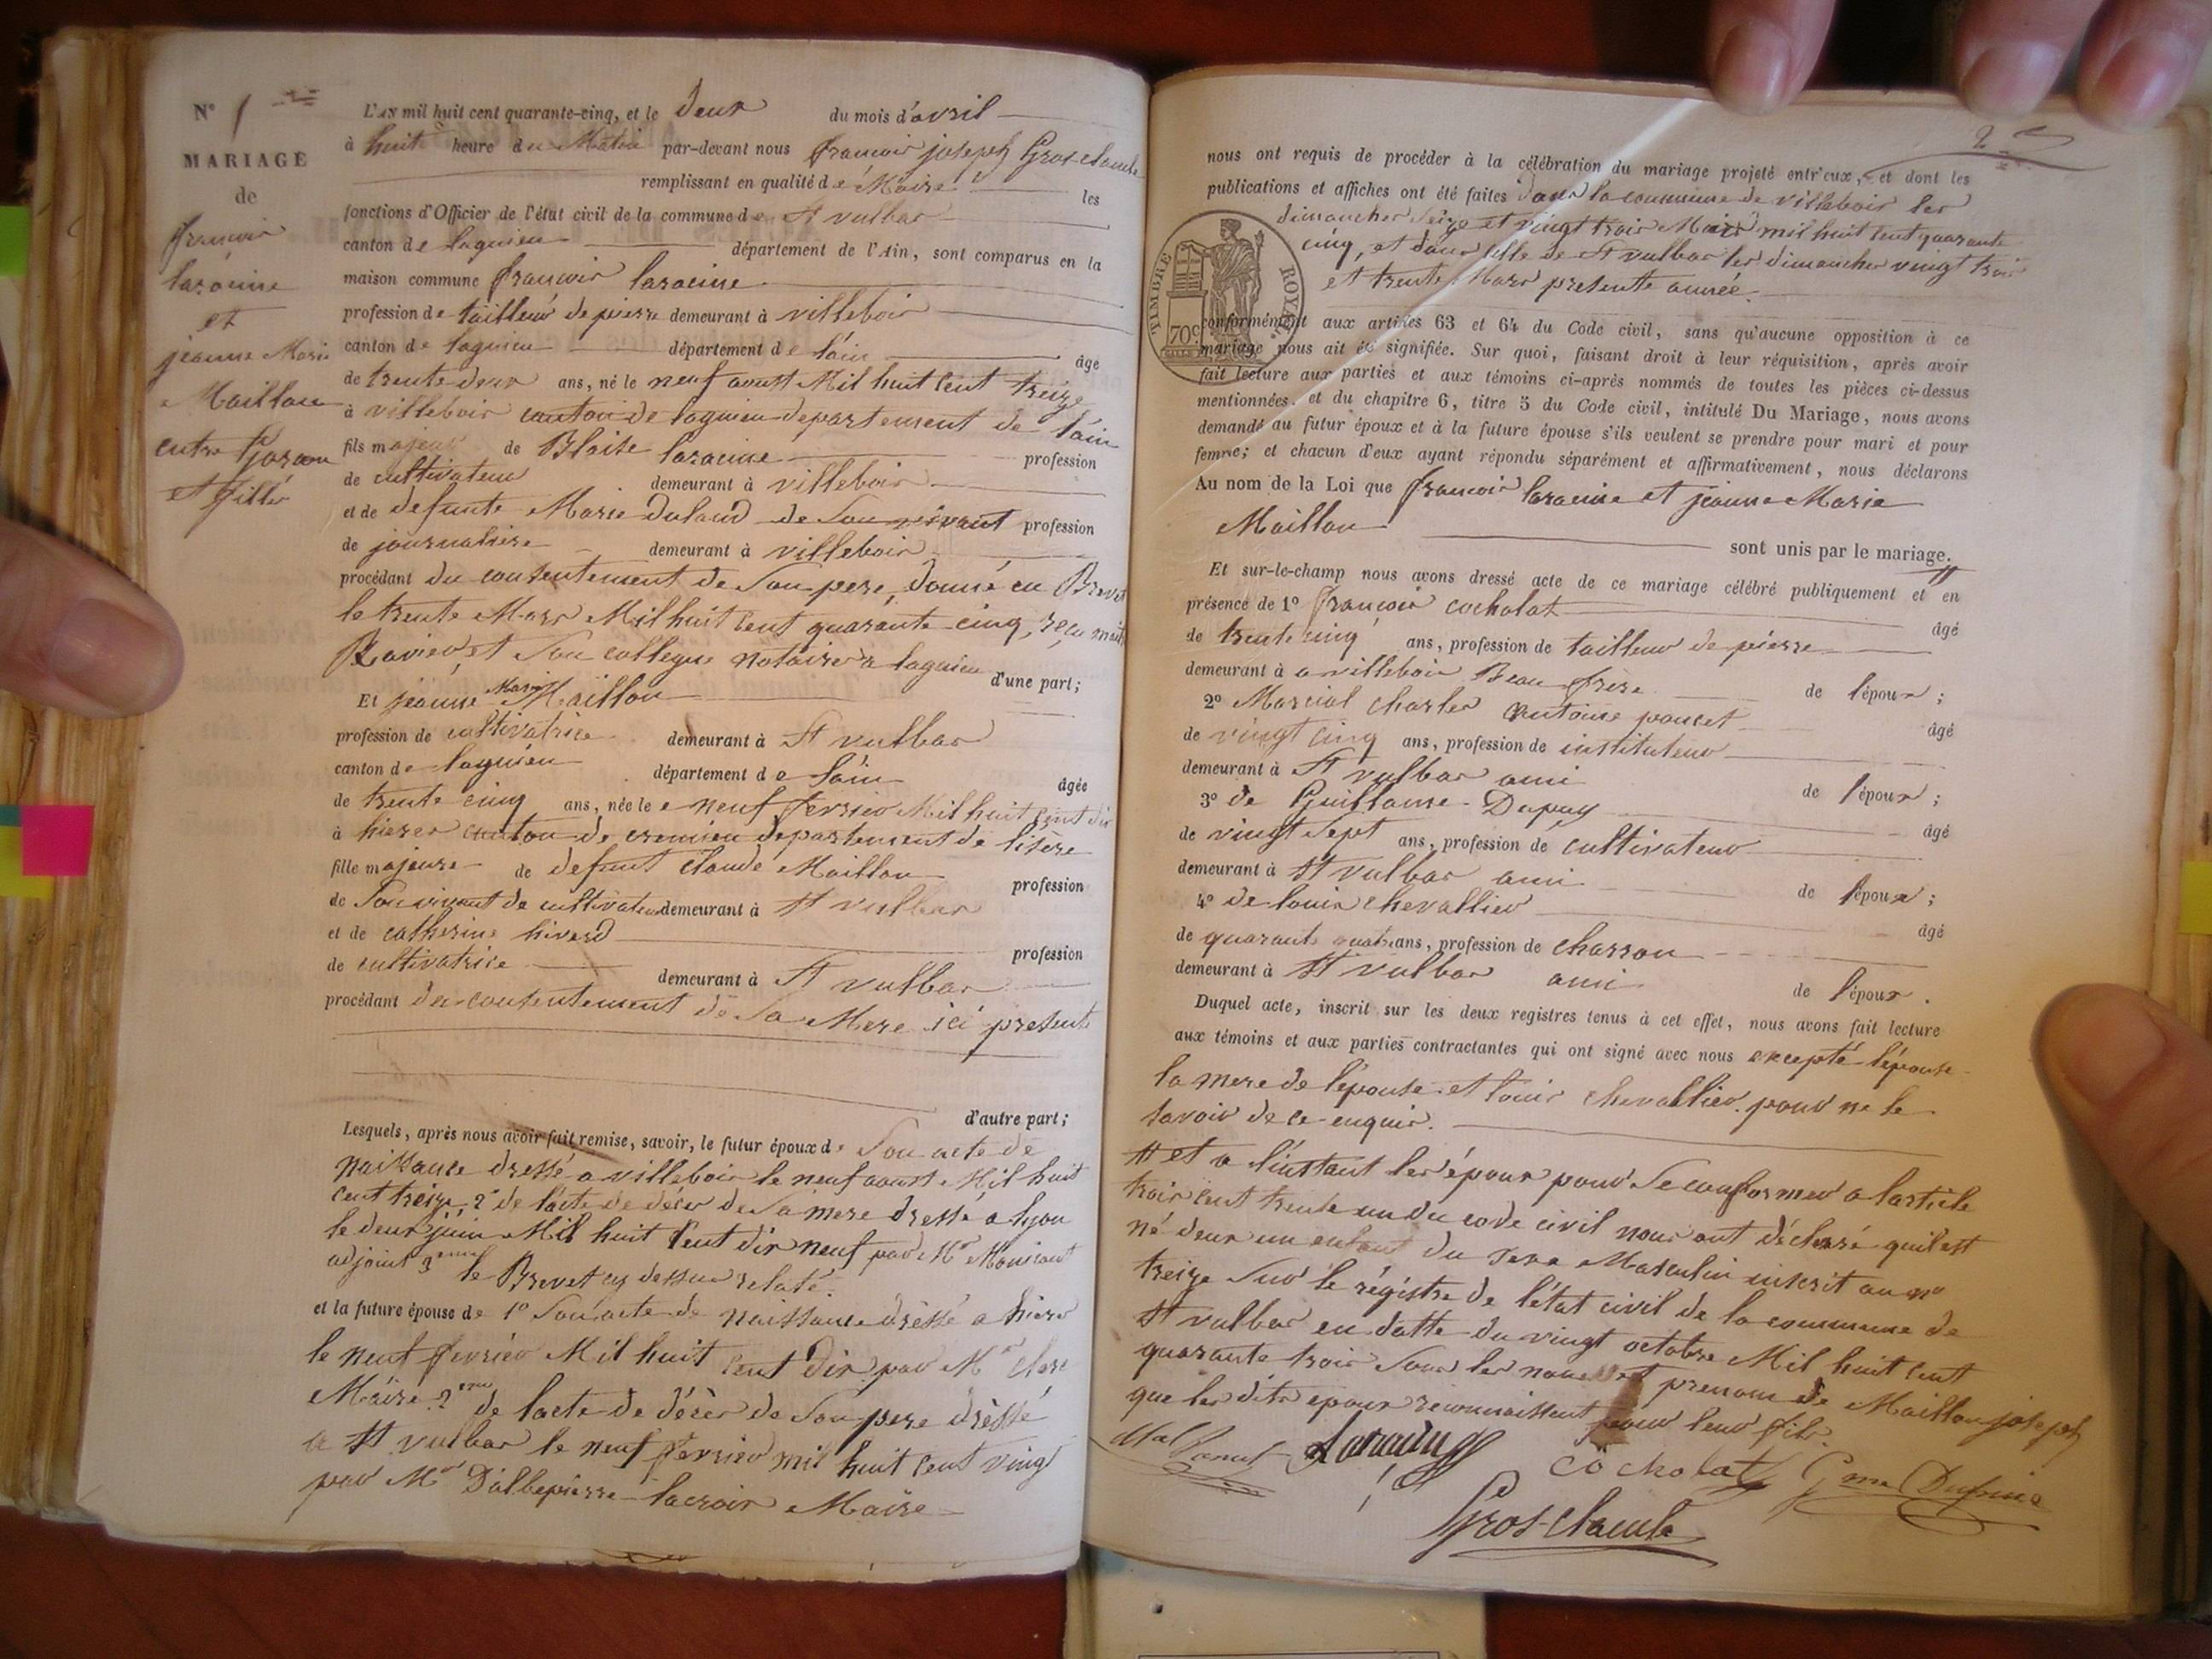 N° 1
MARIAGE
de
francois
laracine
et
jeanne Marie
Maillon
entre Garcon
et fille
L'AN mil huit cent quarante-cinq, et le deux du mois d'avril
à huit heure du Matin par-devant nous francois joseph Gros-claude
remplissant en qualité de Maire les
fonctions d'Officier de l'état civil de la commune de St vulbas
canton de lagnieu département de l'Ain, sont comparus en la
maison commune francois laracine
profession de tailleur de pierre demeurant à villebois
canton de lagnieu département de l'ain âgé
de trente deux ans, né le neuf aoust Mil huit cent treize
à villebois canton de lagnieu departement de l'ain
fils majeur de Blaise laracine profession
de cultivateur demeurant à villebois
et de defunte Marie dulaud de son vivant profession
de journalière demeurant à villebois
procédant du consentement de Son pere, donné en Brevet
le trente Mars Mil huit cent quarante cinq, reçu
et Son collegue notaires a lagnieu d'une part;
Et jeanne Marie Maillon
profession de cultivatrice demeurant à St vulbas
canton de lagnieu département de l'ain âgée
de trente cinq ans, née le neuf fevrier Mil huit cent dix
à hieres canton de cremieu departement de lisère
fille majeure de defunt claude Maillon profession
de Son vivant de cultivateur demeurant à St vulbas
et de catherine hiverd profession
de cultivatrice demeurant à St vulbas
procédant du consentement de Sa Mere ici presente
d'autre part;
Lesquels, après nous avoir fait remise, savoir, le futur époux de Son acte de
naissance dressé a villebois le neuf aoust Mil huit
cent treize, 2° de l'acte de décès de Sa mere dressé a lyon
le deux juin Mil huit Cent dix neuf par Mr
adjoint 3eme le Brevet cy dessus relaté.
et la future épouse de 1° Son acte de naissance dréssé a hieres
le neuf fevrier Mil huit Cent dix par Mr
Maire 2eme de lacte de décès de Son pere dréssé
a St vulbas le neuf fevrier mil huit Cent vingt
par Mr Dalbepierre-lacroix Maire
2
nous ont requis de procéder à la célébration du mariage projeté entr'eux, et dont les
publications et affiches ont été faites dans la commune de villebois les
dimanches Seize et vingt trois Mars mil huit cent quarante
cinq, et dans celle de St vulbas les dimanches vingt trois
et trente Mars presente année.
TIMBRE ROYAL
70c
conformément aux articles 63 et 64 du Code civil, sans qu'aucune opposition à ce
mariage nous ait été signifiée. Sur quoi, faisant droit à leur réquisition, après avoir
fait lecture aux parties et aux témoins ci-après nommés de toutes les pièces ci-dessus
mentionnées, et du chapitre 6, titre 5 du Code civil, intitulé Du Mariage, nous avons
demandé au futur époux et à la future épouse s'ils veulent se prendre pour mari et pour
femme; et chacun d'eux ayant répondu séparément et affirmativement, nous déclarons
Au nom de la Loi que francois laracine et jeanne Marie
Maillon
sont unis par le mariage.
Et sur-le-champ nous avons dressé acte de ce mariage célébré publiquement et en
présence de 1° françois cocholat âgé
de trente cinq ans, profession de tailleur de pierre
demeurant à a villebois Beau frère de l'époux;
2° Marcial charles antoine poncet âgé
de vingt cinq ans, profession de instituteur
demeurant à St vulbas ami de l'époux;
3° de Guillaume Dupuy âgé
de vingt sept ans, profession de cultivateur
demeurant à St vulbas ami de l'époux;
4° de louis chevallier âgé
de quarante quatre ans, profession de charron
demeurant à St vulbas ami de l'époux.
Duquel acte, inscrit sur les deux registres tenus à cet effet, nous avons fait lecture
aux témoins et aux parties contractantes qui ont signé avec nous excepté l'épouse
la mere de l'épouse et louis chevallier pour ne le
savoir de ce enquis.
# et a l'instant les époux pour Se conformer a larticle
trois cent trente un du code civil nous ont déclaré quil est
né deux un enfant du sexe Masculin inscrit au no
treize Sur le régistre de l'état civil de la commune de
St vulbas en datte du vingt octobre Mil huit cent
quarante trois Sous les noms et prenoms de Maillon joseph
que les dits epoux reconnaissent pour leur fils.
Laracine
Cocholat
Gme Dupuis
Gros-claude